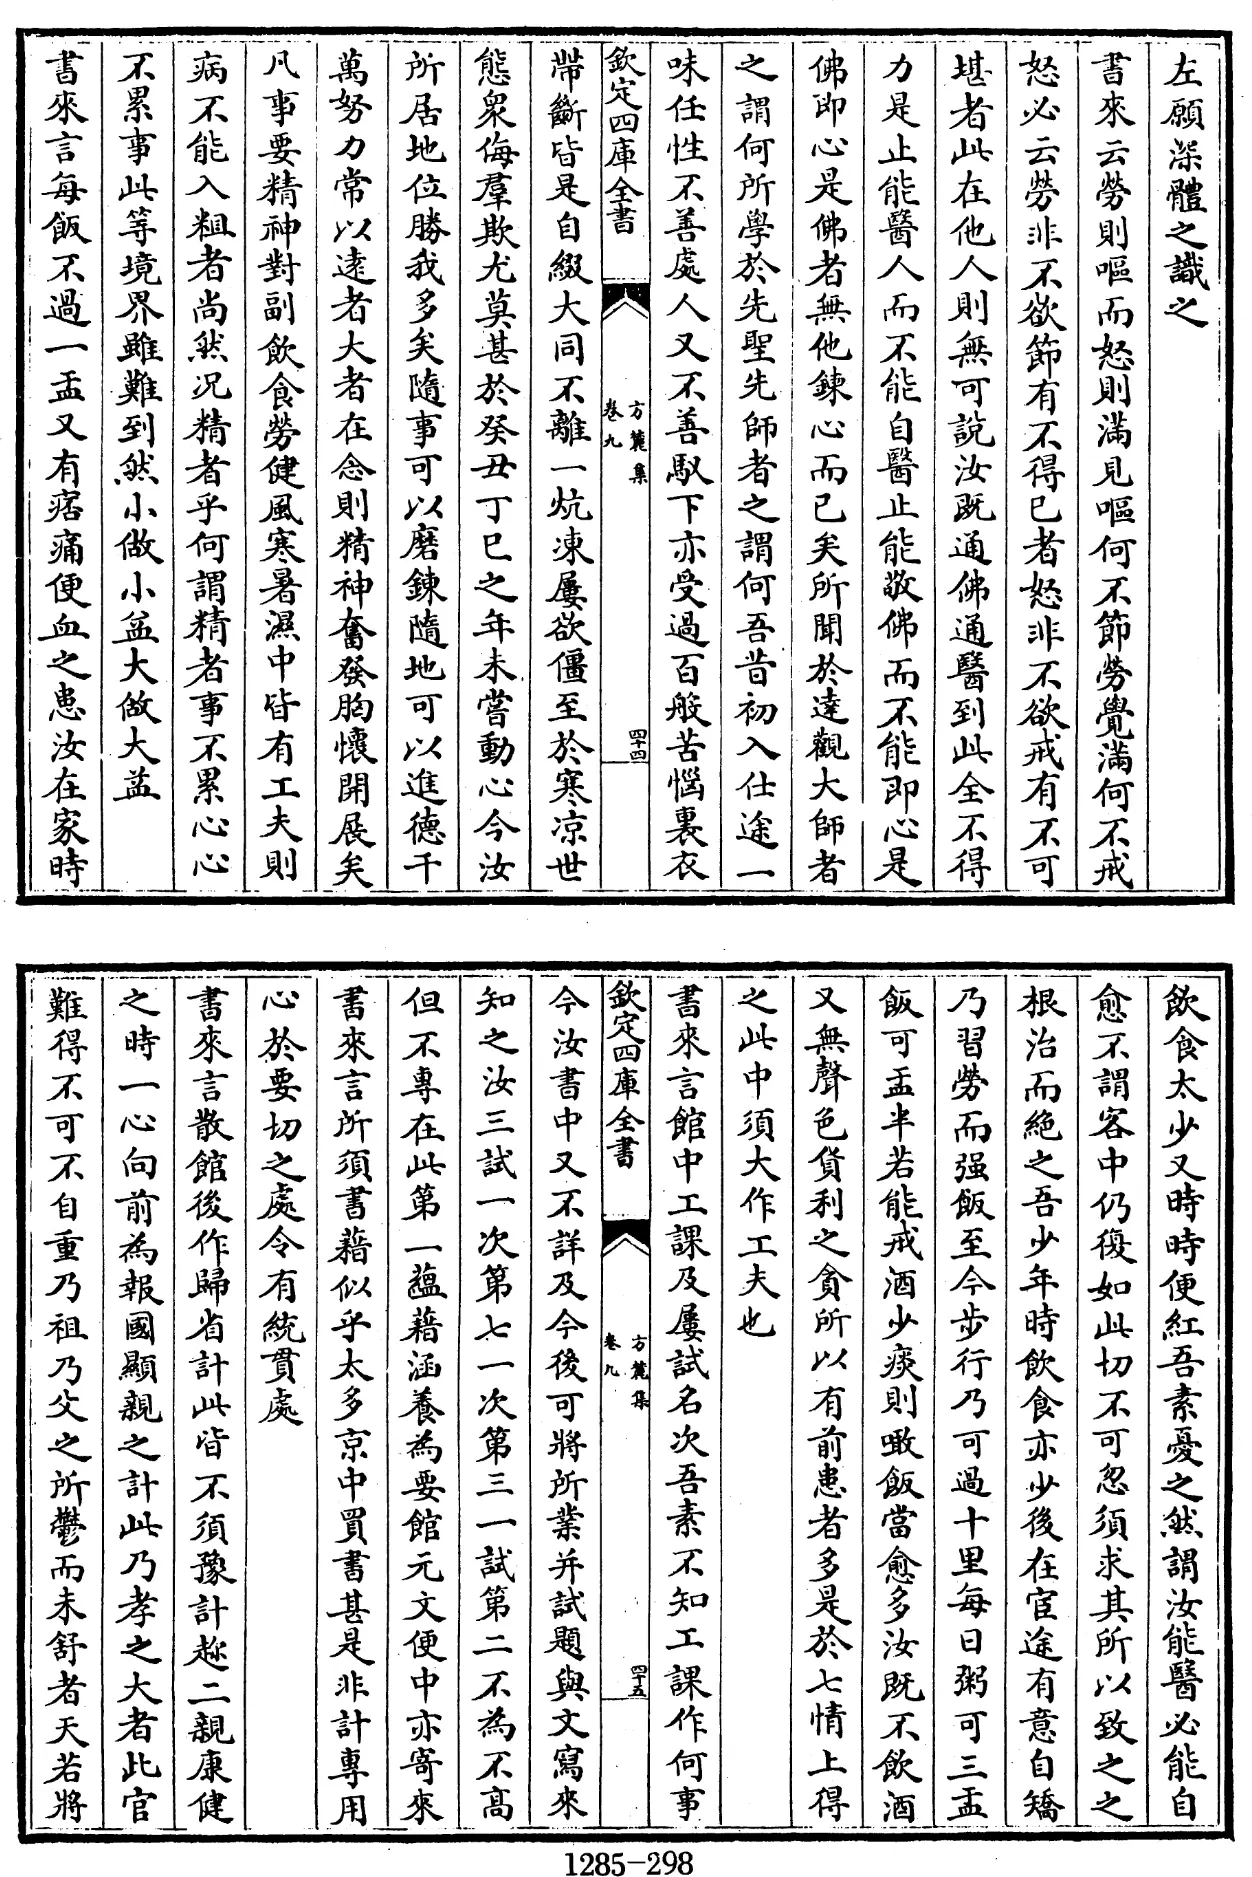 左願深體之識之
書來云勞則嘔而怒則滿見嘔何不節勞覺滿何不戒
怒必云勞非不欲節有不得已者怒非不欲戒有不可
堪者此在他人則無可說汝既通佛通醫到此全不得
力是止能醫人而不能自醫止能敬佛而不能即心是
佛即心是佛者無他鍊心而已矣所聞於達觀大師者
之謂何所學於先聖先師者之謂何吾昔初入仕途一
味任性不善處人又不善馭下亦受過百般苦惱裏衣
欽定四庫全書
方麓集
卷九
四十四
帶斷皆是自綴大同不離一炕凍屢欲僵至於寒凉世
態衆侮羣欺尤莫甚於癸丑丁巳之年未嘗動心今汝
所居地位勝我多矣隨事可以磨鍊隨地可以進德千
萬努力常以遠者大者在念則精神奮發胸懷開展矣
凡事要精神對副飲食勞健風寒暑濕中皆有工夫則
病不能入粗者尚然况精者乎何謂精者事不累心心
不累事此等境界雖難到然小做小益大做大益
書來言每飯不過一盂又有痞痛便血之患汝在家時
飲食太少又時時便紅吾素憂之然謂汝能醫必能自
愈不謂客中仍復如此切不可忽須求其所以致之之
根治而絶之吾少年時飲食亦少後在宦途有意自矯
乃習勞而强飯至今步行乃可過十里每日粥可三盂
飯可盂半若能戒酒少痰則噉飯當愈多汝既不飲酒
又無聲色貨利之貪所以有前患者多是於七情上得
之此中須大作工夫也
書來言館中工課及屢試名次吾素不知工課作何事
欽定四庫全書
方麓集
卷九
四十五
今汝書中又不詳及今後可將所業并試題與文寫來
知之汝三試一次第七一次第三一試第二不為不高
但不專在此第一藴藉涵養為要館元文便中亦寄來
書來言所須書藉似乎太多京中買書甚是非計專用
心於要切之處令有統貫處
書來言散館後作歸省計此皆不須豫計趂二親康健
之時一心向前為報國顯親之計此乃孝之大者此官
難得不可不自重乃祖乃父之所鬱而未舒者天若將
1285-298